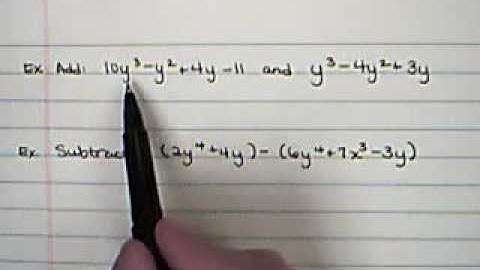 Ex Add: 10y³-y²+4y-11 and y³-4y²+3y
Ex Subtrac (2y⁴+4y)-(6y⁴+7x³-3y)